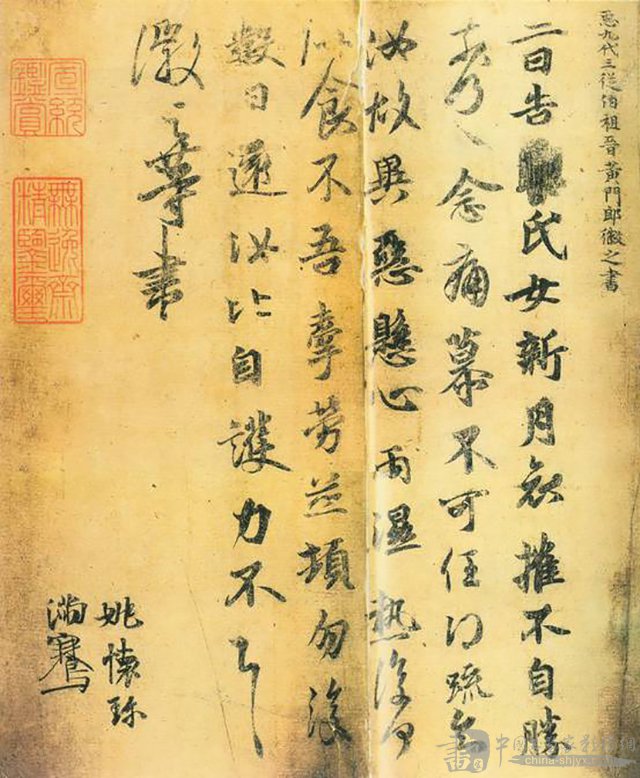 九代三從伯祖晉黃門郎徽之書
二日告氏女新月哀摧不自勝
奈何〻念痛慕不可任得疏知
汝故異惡懸心雨濕熱復何
似食不吾牽勞並頓勿復
數日還汝比自護力不具
徽之等書
姚懷珍
滿騫
宣統鑑賞
無逸齋精鑒璽
china-shjyx.com